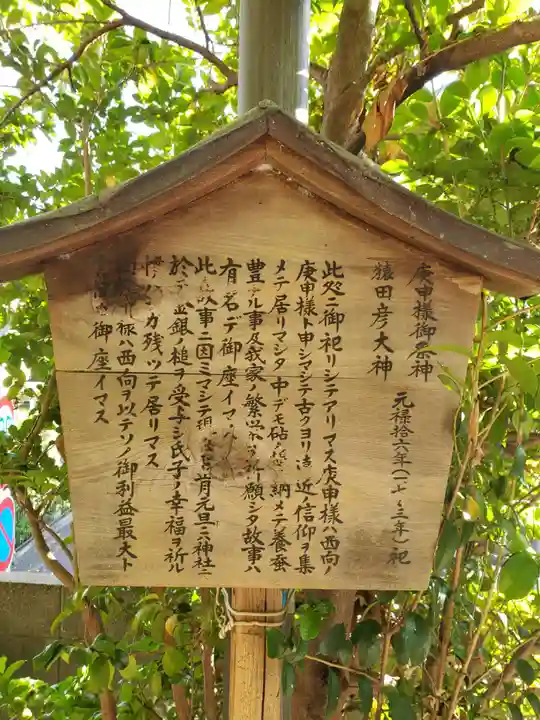 庚申様御祭神
猿田彦大神
元禄拾六年(一七〇三年)祀
此処ニ御祀リシテアリマス庚申様ハ西向ノ
庚申様ト申シマシテ古クヨリ遠近ノ信仰ヲ集
メテ居リマシタ中デモ砧 槌 納メテ養蚕
豊 ナル事及我家ノ繁栄ヲ祈リ願シタ故事ハ
有名デ御座イマス
此ノ故事ニ因ミマシテ現 毎 月元旦ニ神社ニ
於テ金銀ノ槌ヲ受与シ氏子ノ幸福ヲ祈ル
ガ残ツテ居リマス
様ハ西向ヲ以テソノ御利益最大ト
御座イマス